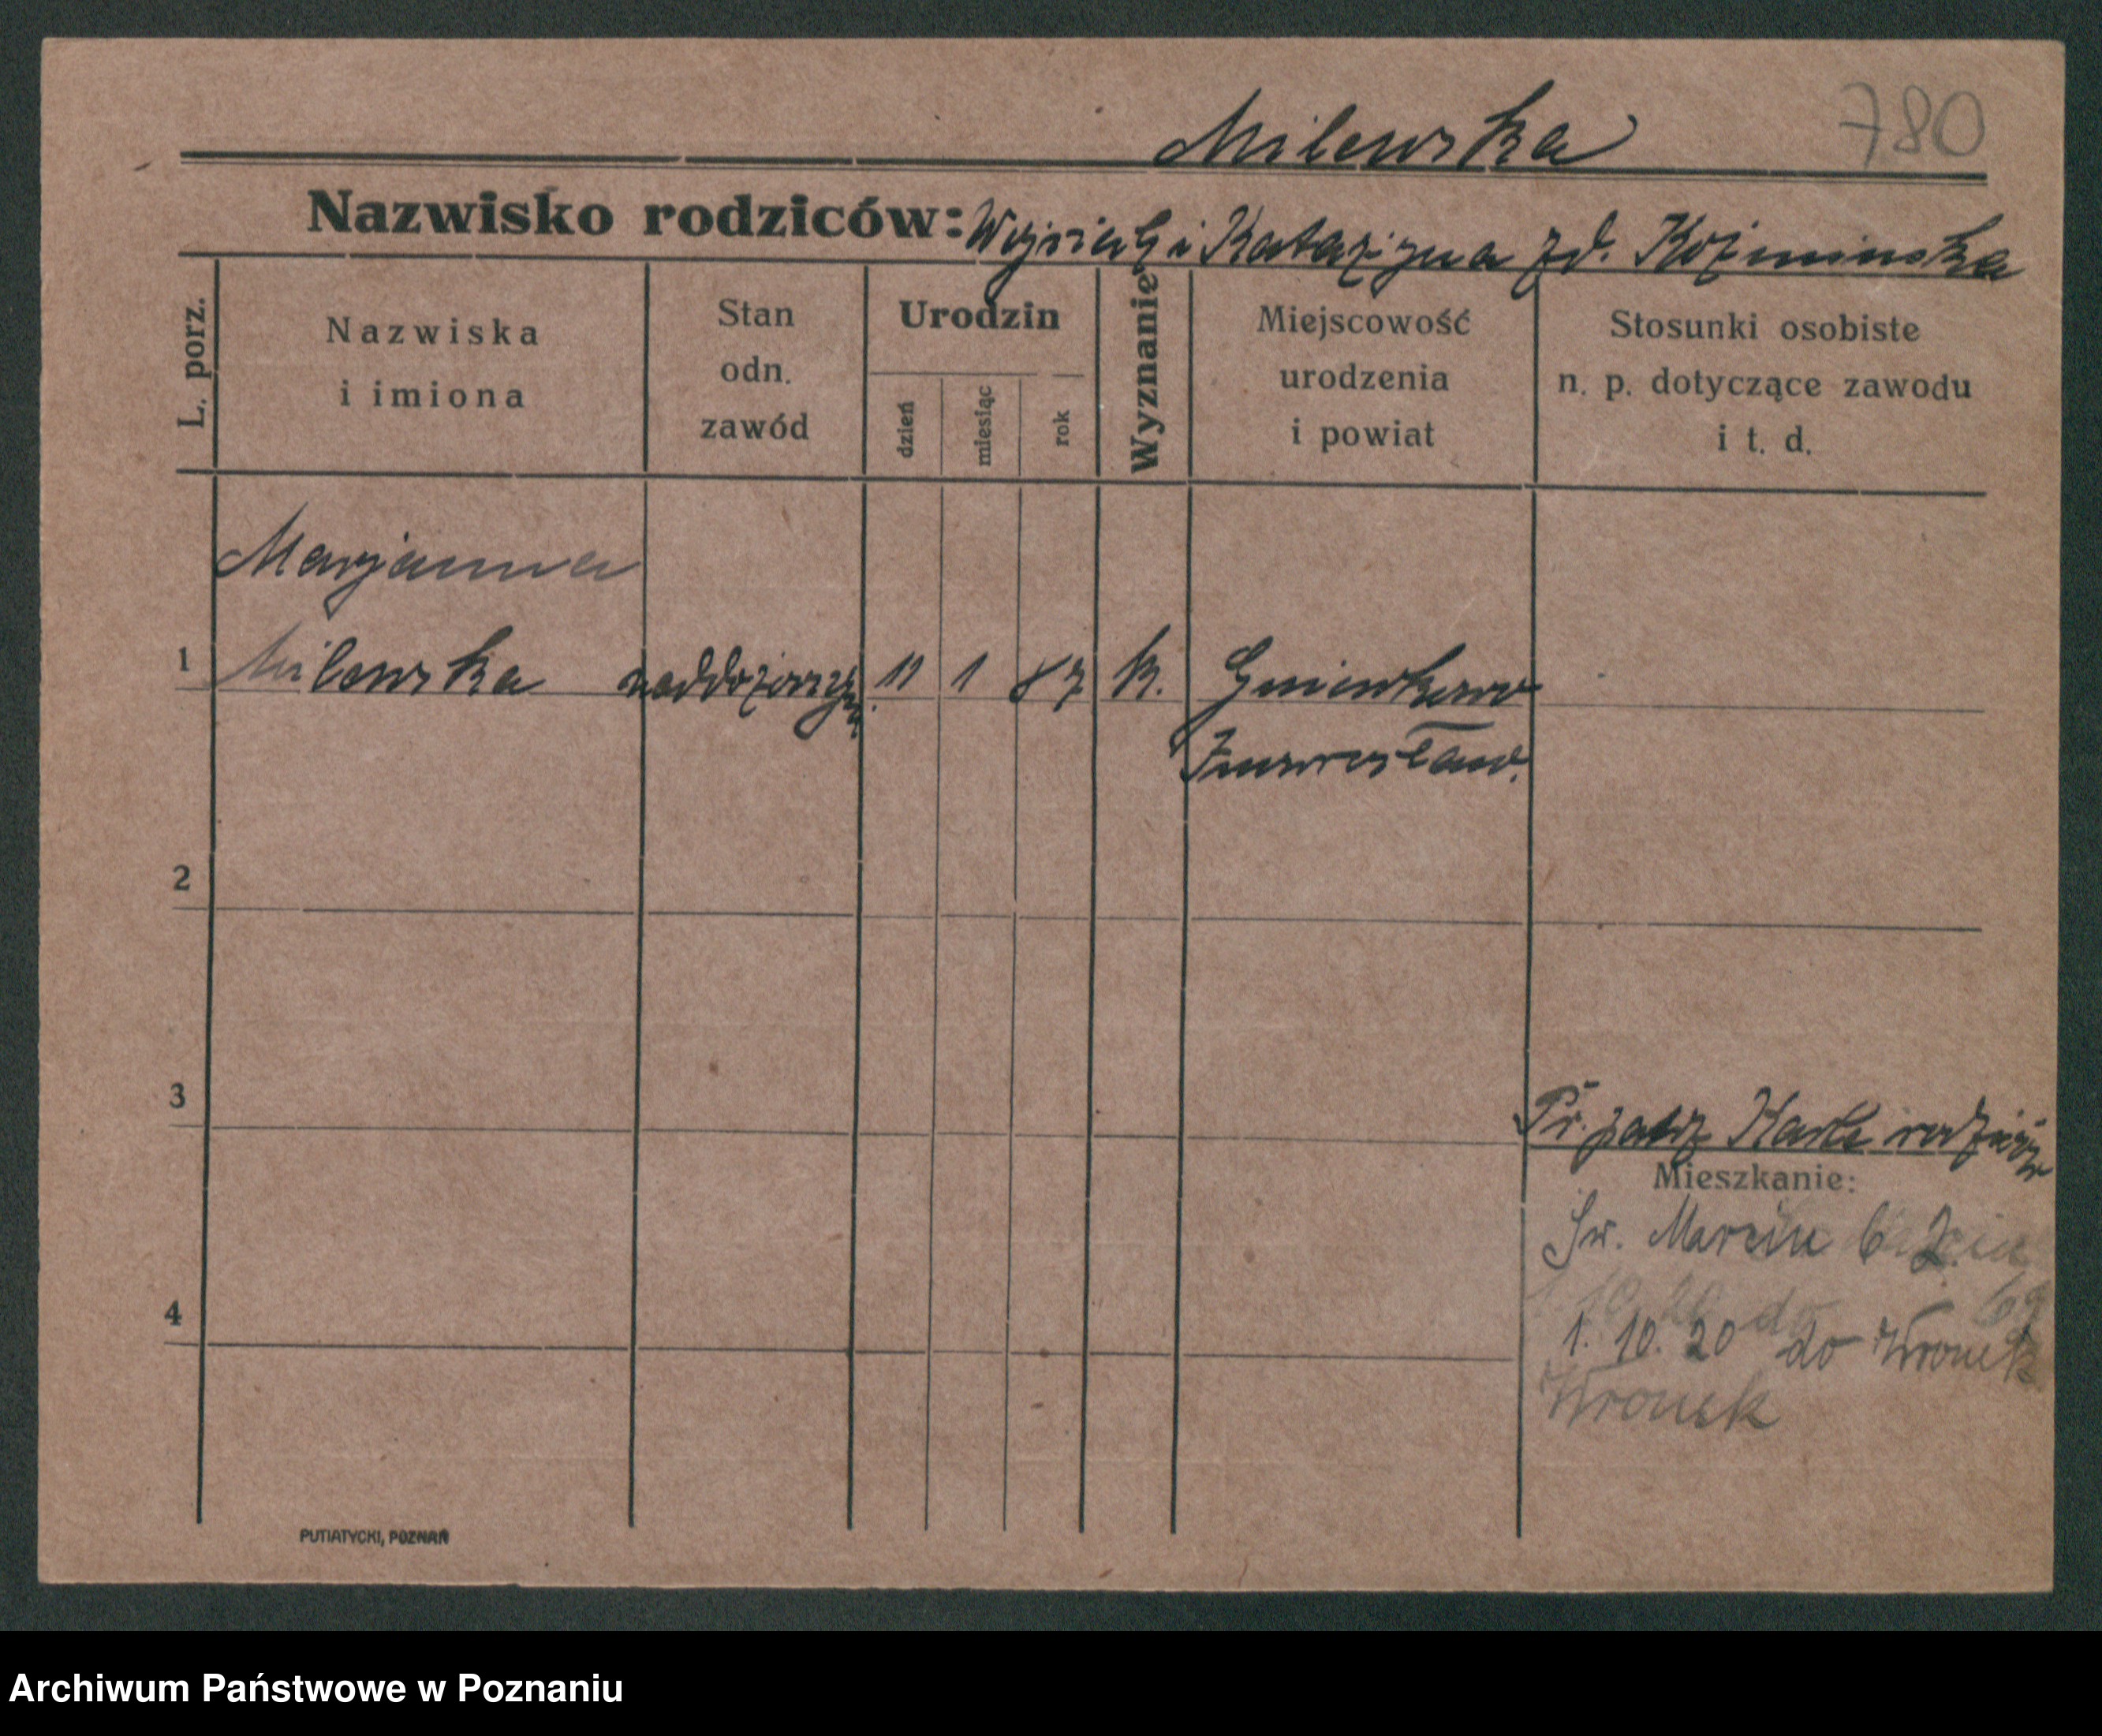 Milewska
780
Nazwisko rodziców: Wojciech i Katarzyna zd. Koźminska
L. porz.
Nazwiska
i imiona
Stan
odn.
zawód
Urodzin
dzień
miesiąc
rok
Wyznanie
Miejscowość
urodzenia
i powiat
Stosunki osobiste
n. p. dotyczące zawodu
i t. d.
Marjanna
1 Milewska naddozorczy 11 1 87 K. Gniewkowo
Inowrocław.
2
3
Pr. patrz Karta rodziców
Mieszkanie:
Św. Marcin
1. 10. 20 do Wronek
4
Wronek
PUTIATYCKI, POZNAŃ
Archiwum Państwowe w Poznaniu